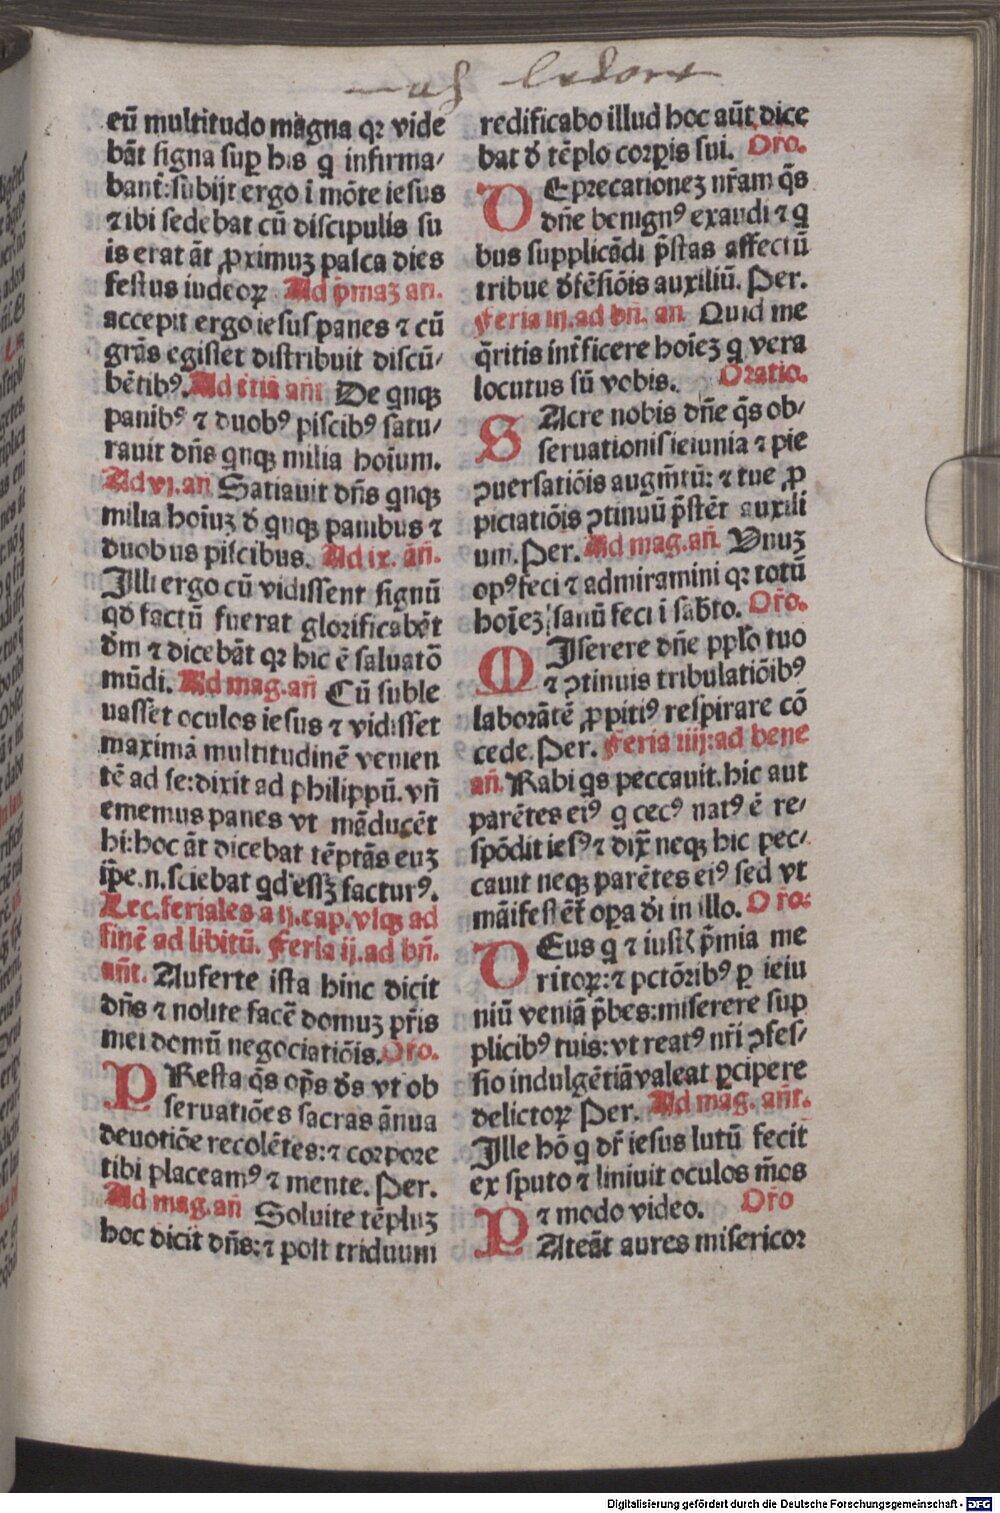 eū multitudo magna qꝛ vide
bāt signa suꝑ his q̄ infirma/
bant̄:subijt ergo ī mōte iesus
⁊ ibi sedebat cū discipulis su
is erat āt ꝓximuꝫ pasca dies
festus iudeoꝝ Ad p̄maꝫ an.
accepit ergo iesus panes ⁊ cū
grās egisset distribuit discū/
bētibꝰ. Ad t̄tiā añt De qnqꝫ
panibꝰ ⁊ duobꝰ piscibꝰ satu/
rauit dn̄s qnqꝫ milia hoīum.
Ad vj.añ Satiauit dn̄s qnqꝫ
milia hoīuꝫ d̄ qnqꝫ panibus ⁊
duobus piscibus. Ad ix. āñ.
Illi ergo cū vidissent signū
qd̄ factū fuerat glorificabēt
dm̄ ⁊ dicebāt qꝛ hic ē saluatō
mūdi. Ad mag.añ Cū suble
uasset oculos iesus ⁊ vidisset
maximā multitudinē venien
tē ad se:dixit ad philippū.vñ
ememus panes vt māducēt
hi:hoc āt dicebat tēptās euꝫ
ip̄e.n.sciebat qd esſꝫ facturꝰ.
Lec.feriales a ij.cap.vsqꝫ ad
finē ad libitū. Feria ij.ad bn̄.
añt. Auferte ista hinc dicit
dn̄s ⁊ nolite facē domuꝫ pr̄is
mei domū negociatiōis. Oro.
PResta q̄s op̄s ds̄ vt ob
seruatiōes sacras ānua
deuotiōe recolētes:⁊ corpore
tibi placeamꝰ ⁊ mente. Per.
Ad mag.añ Soluite tēpluꝫ
hoc dicit dn̄s:⁊ post triduum
redificabo illud hoc aūt dice
bat d̄ tēplo corꝑis sui. Oro.
DEprecationeꝫ nr̄am q̄s
dn̄e benignꝰ exaudi ⁊ q
bus supplicādi p̄stas affectū
tribue d̄fēsiōis auxiliū. Per.
Feria iij.ad bn̄. an Quid me
q̄ritis int̄ficere hoīeꝫ q vera
locutus sū vobis. Oratio.
SAcre nobis dn̄e q̄s ob/
seruationis ieiunia ⁊ pie
ꝯuersatiōis augm̄tū: ⁊ tue ꝓ
piciatiōis ꝯtinuū p̄stēt auxili
um. Per. Ad mag.añ Vnuꝫ
opꝰ feci ⁊ admiramini qꝛ totū
hoīeꝫ sanū feci ī sab̄to. Or̄o.
MIserere dn̄e pplo tuo
⁊ ꝯtinuis tribulatiōibꝰ
laborātē ꝓpitiꝰ respirare cō
cede. Per. Feria iiij:ad bene
añ. Rabi qs peccauit. hic aut
parētes eiꝰ q cecꝰ natꝰ ē re/
spōdit iesꝰ ⁊ dix̄ neqꝫ hic pec/
cauit neqꝫ parētes eiꝰ sed vt
māifestēt̄ oꝑa di in illo. Oro:
DEus q ⁊ iustꝭ p̄mia me
ritoꝝ:⁊ pctōribꝰ ꝑ ieiu
niū veniā p̄bes:miserere sup
plicibꝰ tuis:vt reatꝰ nr̄i ꝯfes/
sio indulgētiā valeat ꝑcipere
delictoꝝ Per. Ad mag. añt.
Ille hō q dr̄ iesus lutū fecit
ex sputo ⁊ liniuit oculos m̄os
⁊ modo video. Or̄o
PAteāt aures misericor
Digitalisierung gefördert durch die Deutsche Forschungsgemeinschaft - DFG